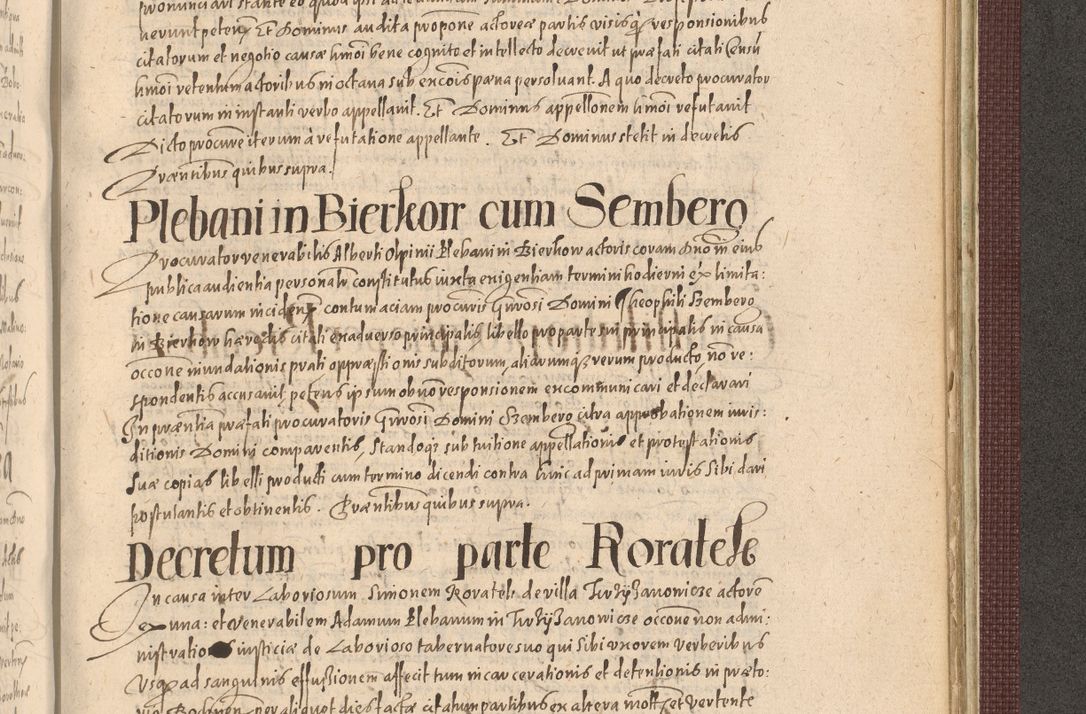 uerunt peten Et Dominus audita propone actoreæ partis visisq responsionibus
citatorum et negotio causæ hmoi bene cognito et intellecto decreuit ut præfati citati Censu
hmoi retentum actoribus in octaua sub excois pæna persoluant. A quo decreto procurator
citatorum in instanti verbo appellauit. Et Dominus appellonem hmoi refutauit
Dicto procure iterum a refutatione appellante. Et Dominus stetit in decretis
Præntibus quibus supra.
Plebani in Bierkow cum Sembero
Procurator venerabilis Alberti Olpinii Plebani in Bierkow actoris coram dno in eius
publica audientia personalr constitutus iuxta exigentiam termini hodierni ex limita:
tione causarum inciden contumaciam procuris Gnrosi Domini Theophili Szembero
in Bierkow hæredis citati ex aduerso principalis, libello pro parte sui principalis in causa
occone inundationis prati oppræssionis subditorum, aliarumq rerum producto, no re:
spondentis accusauit, petens ipsum ob non responsionem excommunicari et declarari
In præntia præfati procuratoris Gnrosi Domini Szembero citra approbationem iuris:
ditionis Domini comparentis, Standoq sub tuitione appellationis et protestationis
Suæ copias libelli producti cum termino dicendi contra hinc ad primam iuris Sibi dari
postulantis et obtinentis. Præntibus quibus supra.
Decretum pro parte Roratek
In causa inter Laboriosum Simonem Roratek de villa actore
ex una: et venerabilem Adamum Plebanum in occone non admi:
nistratio iusticiæ de Laborioso tabernatore suo qui Sibi uxorem verberibus
Vsq ad sanguinis effussionem affecit tum incarcerationis et detentionis in præto:
per aliquot dies factæ citatum partibus ex altera vertente